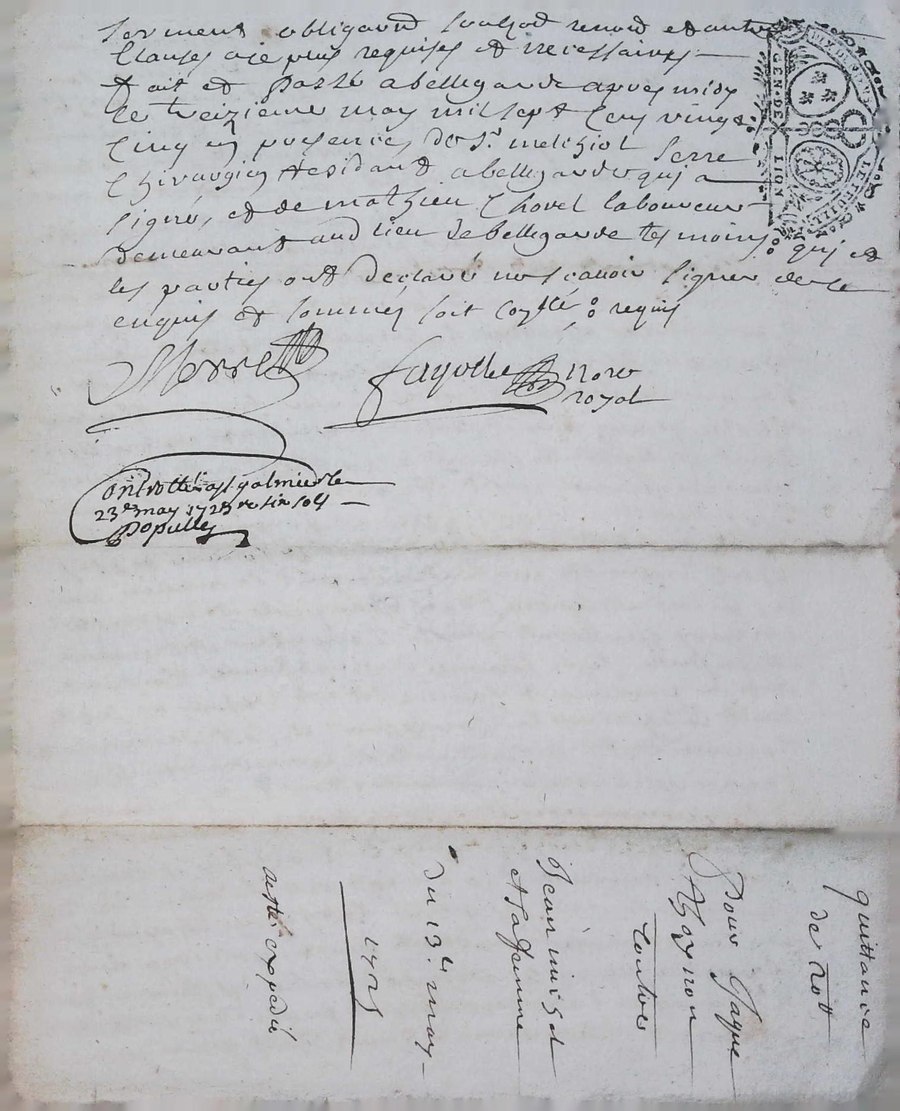 serment obligaõn renoõn et autres
clauses a ce plus requises et necessaires
fait et passé a bellegarde apres midy
le treizieme may mil sept cens vingt
cinq en presences de Sr. melchiol serre
chirurgien residant a bellegarde qui a
signé, et de mathieu Chovel laboureur
demeurant aud lieu de bellegarde tesmoins qui et
les parties ont declaré ne scavoir signer de ce
enquis et sommés soit coñllé requis
Serre fayolle Nore
royal
Controllé a st galmier le
23e may 1725 re six sols
Populle
GEN. DE LION
quittance
de
Pour Jaque
contre
Jean
et sa femme
du 13e. may
1725
expedié